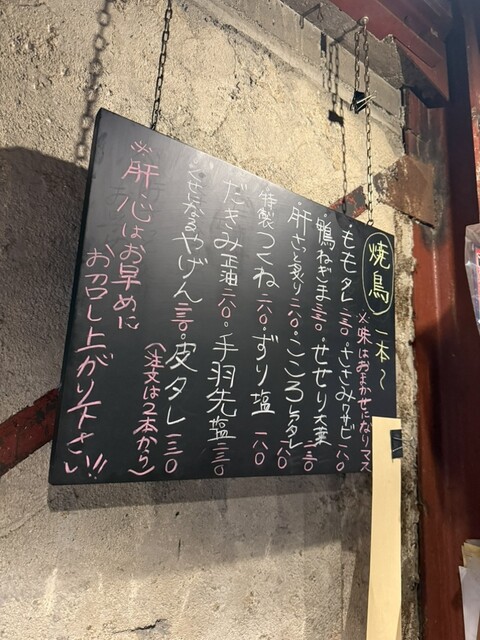 焼鳥 一本〜
※味はおまかせになりマス
ももタレ 二三〇・ささみワサビ 一八〇
・鴨ねぎま 三三〇・せせり大葉 二三〇
・肝さっと炙り 二八〇・こころタレ 一八〇
・特製つくね 二八〇・ずり塩 一八〇
・だきみ正油 二八〇・手羽先塩 二三〇
くせになるやげん 二三〇・皮タレ 一三〇
(注文は2本から)
※肝、心はお早めに
お召し上がり下さい!!